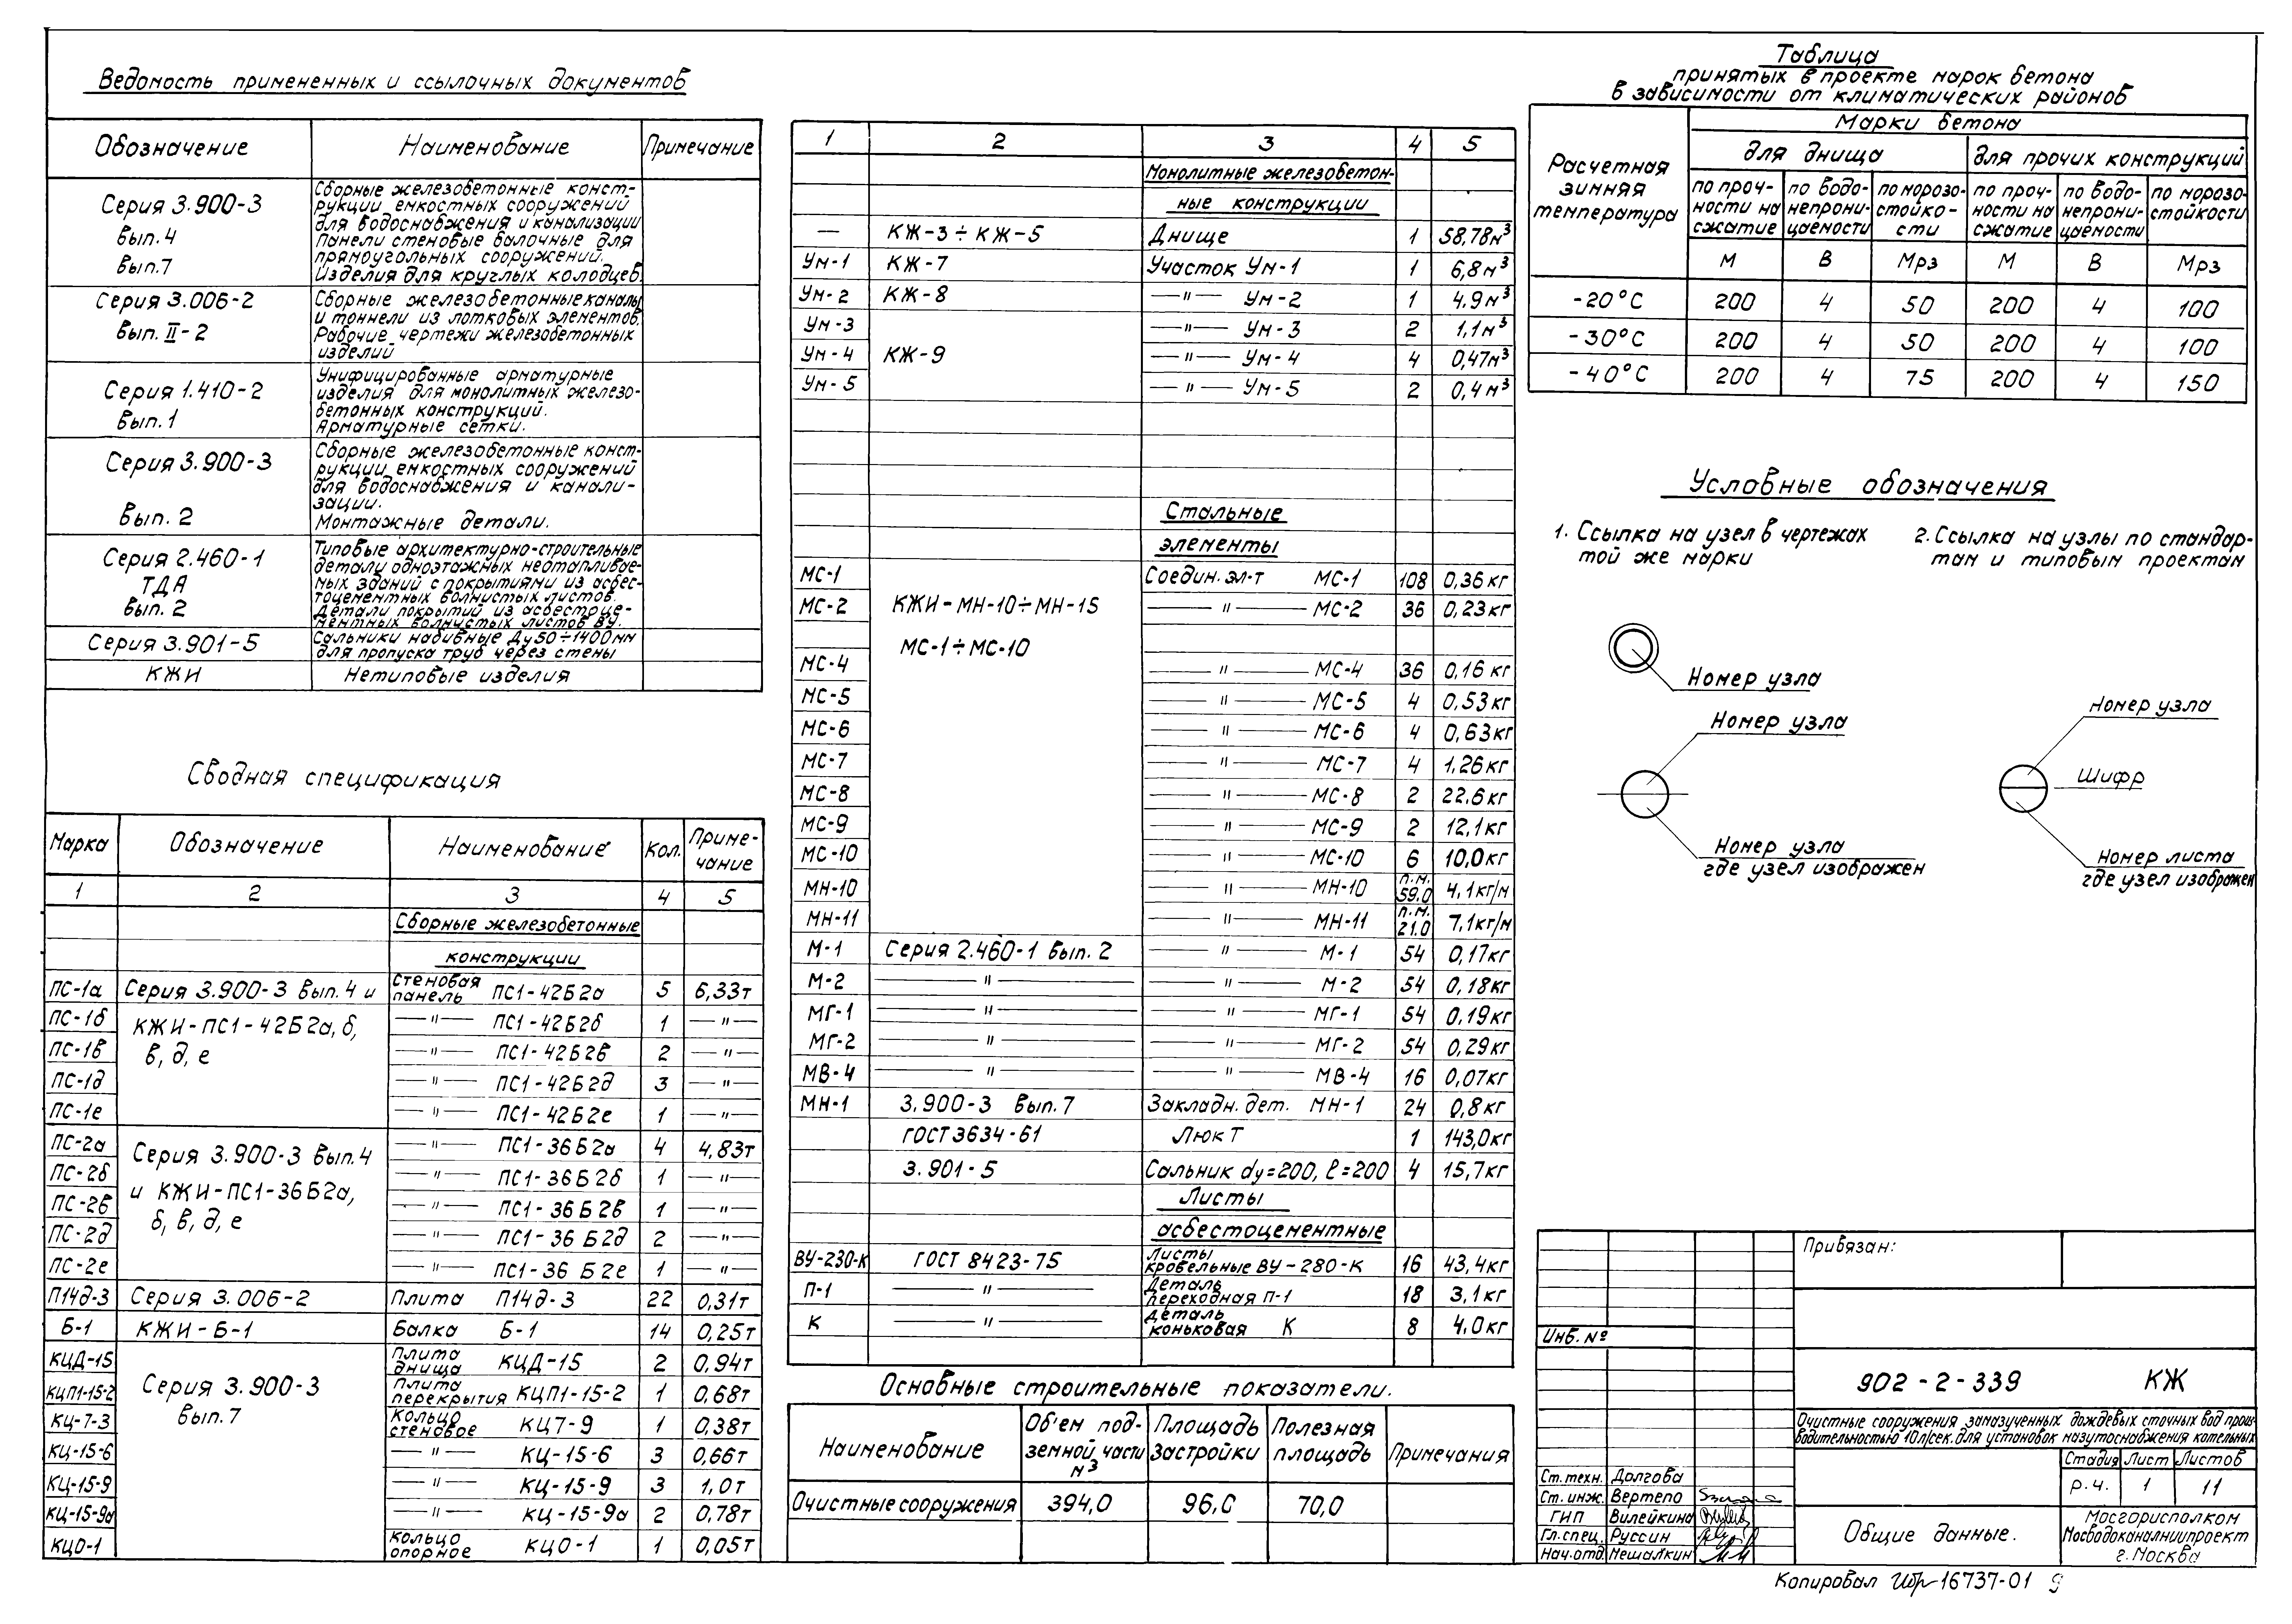 Ведомость примененных и ссылочных документов
Обозначение Наименование Примечание
Серия 3.900-3
вып. 4
вып. 7
Сборные железобетонные конст-
рукции емкостных сооружений
для водоснабжения и канализации
Панели стеновые балочные для
прямоугольных сооружений.
Изделия для круглых колодцев.
Серия 3.006-2
вып. II-2
Сборные железобетонные каналы
и тоннели из лотковых элементов.
Рабочие чертежи железобетонных
изделий
Серия 1.410-2
вып. 1
Унифицированные арматурные
изделия для монолитных железо-
бетонных конструкций.
Арматурные сетки.
Серия 3.900-3
вып. 2
Сборные железобетонные конст-
рукции емкостных сооружений
для водоснабжения и канали-
зации.
Монтажные детали.
Серия 2.460-1
ТДА
вып. 2
Типовые архитектурно-строительные
детали одноэтажных неотапливае-
мых зданий с покрытиями из асбес-
тоцементных волнистых листов.
Детали покрытий из асбестоце-
ментных волнистых листов ВУ.
Серия 3.901-5
Сальники набивные Ду50÷1400 мм
для пропуска труб через стены
КЖИ Нетиповые изделия
Сводная спецификация
Марка Обозначение Наименование Кол. Приме-
чание
1 2 3 4 5
Сборные железобетонные
конструкции
ПС-1а Серия 3.900-3 вып. 4 и Стеновая панель ПС1-42Б2а 5 6,33т
ПС-1б КЖИ-ПС1-42Б2а, б, —"— ПС1-42Б2б 1 —"—
ПС-1в в, д, е —"— ПС1-42Б2в 2 —"—
ПС-1д —"— ПС1-42Б2д 3 —"—
ПС-1е —"— ПС1-42Б2е 1 —"—
ПС-2а Серия 3.900-3 вып. 4 —"— ПС1-36Б2а 4 4,83т
ПС-2б —"— ПС1-36Б2б 1 —"—
ПС-2в и КЖИ-ПС1-36Б2а, —"— ПС1-36Б2в 1 —"—
ПС-2д б, в, д, е —"— ПС1-36Б2д 2 —"—
ПС-2е —"— ПС1-36Б2е 1 —"—
П14д-3 Серия 3.006-2 Плита П14д-3 22 0,31т
Б-1 КЖИ-Б-1 Балка Б-1 14 0,25т
КЦД-15 Плита днища КЦД-15 2 0,94т
КЦП1-15-2 Серия 3.900-3 Плита перекрытия КЦП1-15-2 1 0,68т
КЦ-7-3 вып. 7 Кольцо стеновое КЦ7-9 1 0,38т
КЦ-15-6 —"— КЦ-15-6 3 0,66т
КЦ-15-9 —"— КЦ-15-9 3 1,0т
КЦ-15-9а —"— КЦ-15-9а 2 0,78т
КЦО-1 Кольцо опорное КЦО-1 1 0,05т
1 2 3 4 5
Монолитные железобетон-
ные конструкции
— КЖ-3÷КЖ-5 Днище 1 58,78м³
Ум-1 КЖ-7 Участок Ум-1 1 6,8м³
Ум-2 КЖ-8 —"— Ум-2 1 4.9м³
Ум-3 —"— Ум-3 2 1,1м³
Ум-4 КЖ-9 —"— Ум-4 4 0,47м³
Ум-5 —"— Ум-5 2 0,4м³
Стальные
элементы
МС-1 Соедин. эл-т МС-1 108 0,36кг
МС-2 КЖИ-МН-10÷МН-15 —"— МС-2 36 0,23кг
МС-1÷МС-10
МС-4 —"— МС-4 36 0,16кг
МС-5 —"— МС-5 4 0,53кг
МС-6 —"— МС-6 4 0,63кг
МС-7 —"— МС-7 4 1,26кг
МС-8 —"— МС-8 2 22.6кг
МС-9 —"— МС-9 2 12,1кг
МС-10 —"— МС-10 6 10,0кг
МН-10 —"— МН-10 п.м. 59.0 4,1кг/м
МН-11 —"— МН-11 п.м. 21.0 7,1кг/м
М-1 Серия 2.460-1 вып. 2 —"— М-1 54 0,17кг
М-2 —"— —"— М-2 54 0,18кг
МГ-1 —"— —"— МГ-1 54 0,19кг
МГ-2 —"— —"— МГ-2 54 0,29кг
МВ-4 —"— —"— МВ-4 16 0,07кг
МН-1 3.900-3 вып. 7 Закладн. дет. МН-1 24 0,8кг
ГОСТ 3634-61 Люк Т 1 143,0кг
3.901-5 Сальник dу=200, ℓ=200 4 15,7кг
Листы
асбестоцементные
ВУ-230-К ГОСТ 8423-75 Листы кровельные ВУ-280-К 16 43,4кг
П-1 —"— Деталь переходная П-1 18 3,1кг
К —"— Деталь коньковая К 8 4.0кг
Основные строительные показатели.
Наименование Об'ем под-
земной части
м³ Площадь
застройки Полезная
площадь Примечания
Очистные сооружения 394,0 96,0 70,0
Таблица
принятых в проекте марок бетона
в зависимости от климатических районов
Расчетная
зимняя
температура
Марки бетона
для днища для прочих конструкций
по проч-
ности на
сжатие
по водо-
непрони-
цаемости
по морозо-
стойко-
сти
по проч-
ности на
сжатие
по водо-
непрони-
цаемости
по морозо-
стойкости
М В Мрз М В Мрз
-20°С 200 4 50 200 4 100
-30°С 200 4 50 200 4 100
-40°С 200 4 75 200 4 150
Условные обозначения
1. Ссылка на узел в чертежах
той же марки
2. Ссылка на узлы по стандар-
там и типовым проектам
Номер узла
Номер узла
Номер узла
где узел изображен
Номер узла
Шифр
Номер листа
где узел изображен
Привязан:
Инв. №
902-2-339 КЖ
Очистные сооружения замазученных дождевых сточных вод произ-
водительностью 10л/сек. для установок мазутоснабжения котельных
Стадия Лист Листов
р.ч. 1 11
Ст. техн. Долгова
Ст. инж. Вертепо
ГИП Вилейкина
Гл. спец. Руссин
Нач. отд. Мешалкин
Общие данные.
Мосгорисполком
Мосводоканалниипроект
г. Москва
Копировал 16737-01 9